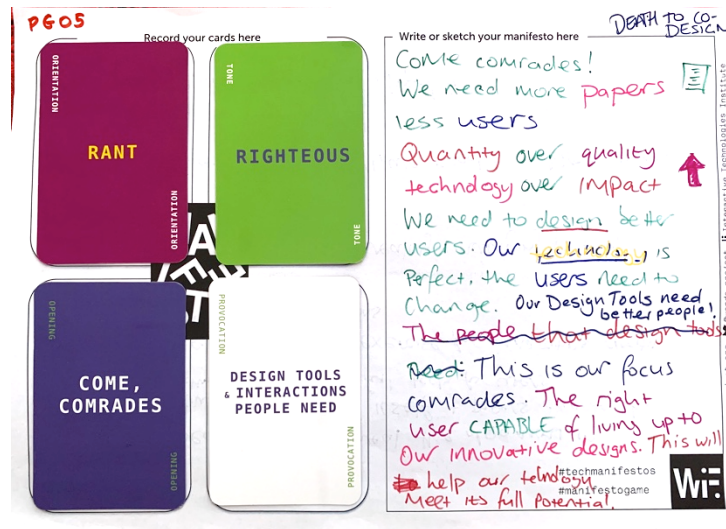 PG05
Record your cards here
ORIENTATION
RANT
ORIENTATION
TONE
RIGHTEOUS
TONE
OPENING
COME,
COMRADES
OPENING
PROVOCATION
DESIGN TOOLS
& INTERACTIONS
PEOPLE NEED
PROVOCATION
DEATH TO CO-
DESIGN
Write or sketch your manifesto here
Come comrades!
We need more papers
less users
Quantity over quality
technology over IMPact
We need to design better
users. Our technology is
Perfect, the users need to
Change. Our Design Tools need
better people!
The people that design tools
Need: This is our focus
comrades. The right
user CAPABLE of living up to
Our innovative designs. This will
help our technology
Meet its full potential.
#techmanifestos
#manifestogame
WiF
Interactive Technologies Institute